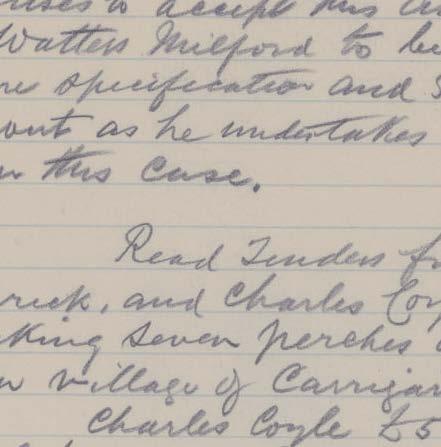 to accept this
Watters Milford to be
re specification and S
out as he undertakes
in this case.
Read Tenders fr
rick, and Charles Coy
king seven perches
village of Carrigar
Charles Coyle £5